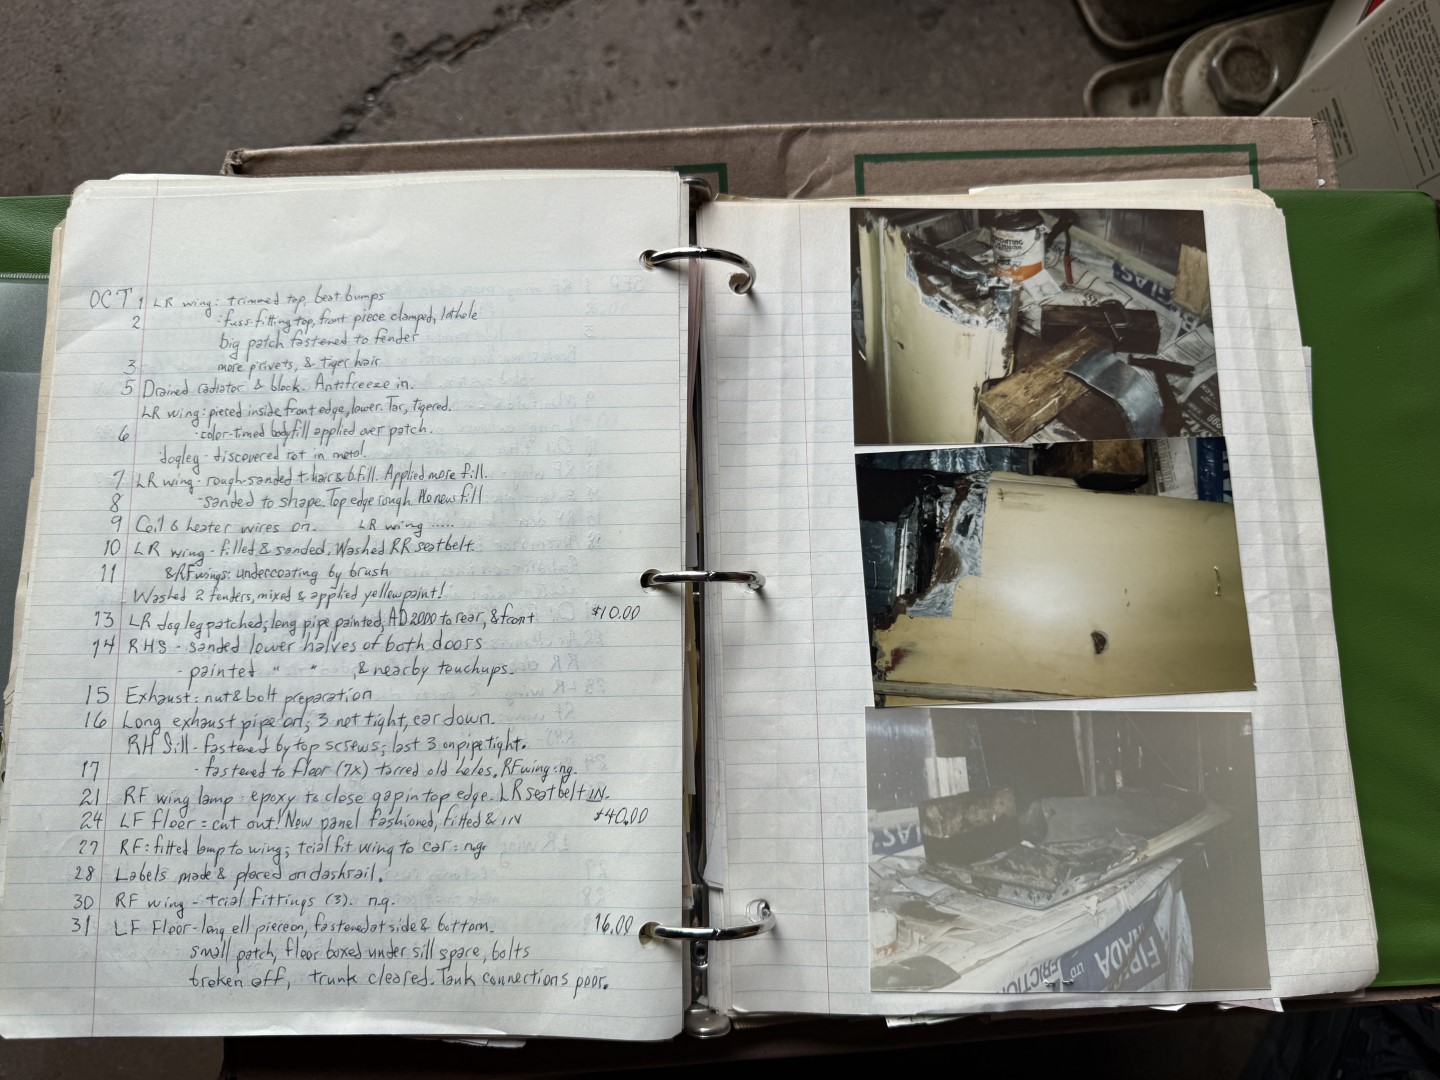 OCT 1 LR wing: trimmed top, beat bumps
2 -fuss-fitting top, front piece clamped, lathole
big patch fastened to fender
3 more privets, & tiger hair
5 Drained radiator & block. Antifreeze in.
LR wing: pieced inside front edge, lower. Tar, tigered.
6 -color-timed bodyfill applied over patch.
dogleg - discovered rot in metal.
7 LR wing - rough-sanded t-hair & b.fill. Applied more fill.
8 -sanded to shape. Top edge rough. new fill
9 Coil & heater wires on. LR wing .....
10 LR wing - filled & sanded. Washed RR seatbelt
11 & RF wings: undercoating by brush
Washed 2 fenders, mixed & applied yellow paint!
13 LR dogleg patched; long pipe painted, AD2000 to rear, & front $10.00
14 RHS - sanded lower halves of both doors
- painted " " , & nearby touchups.
15 Exhaust: nut & bolt preparation
16 Long exhaust pipe on; 3 not tight, car down.
RH Sill - fastened by top screws; last 3 on pipe tight.
17 - fastened to floor (7x) tarred old holes. RF wing: ng.
21 RF wing lamp epoxy to close gap in top edge. LR seatbelt IN.
24 LF floor = cut out! New panel fashioned, fitted & IN $40.00
27 RF: fitted lamp to wing; trial fit wing to car: ng.
28 Labels made & placed on dashrail.
30 RF wing - trial fittings (3). n.g.
31 LF Floor - long ell piece on, fastened at side & bottom. 16.00
small patch, floor boxed under sill spare, bolts
broken off, trunk cleared. Tank connections poor.